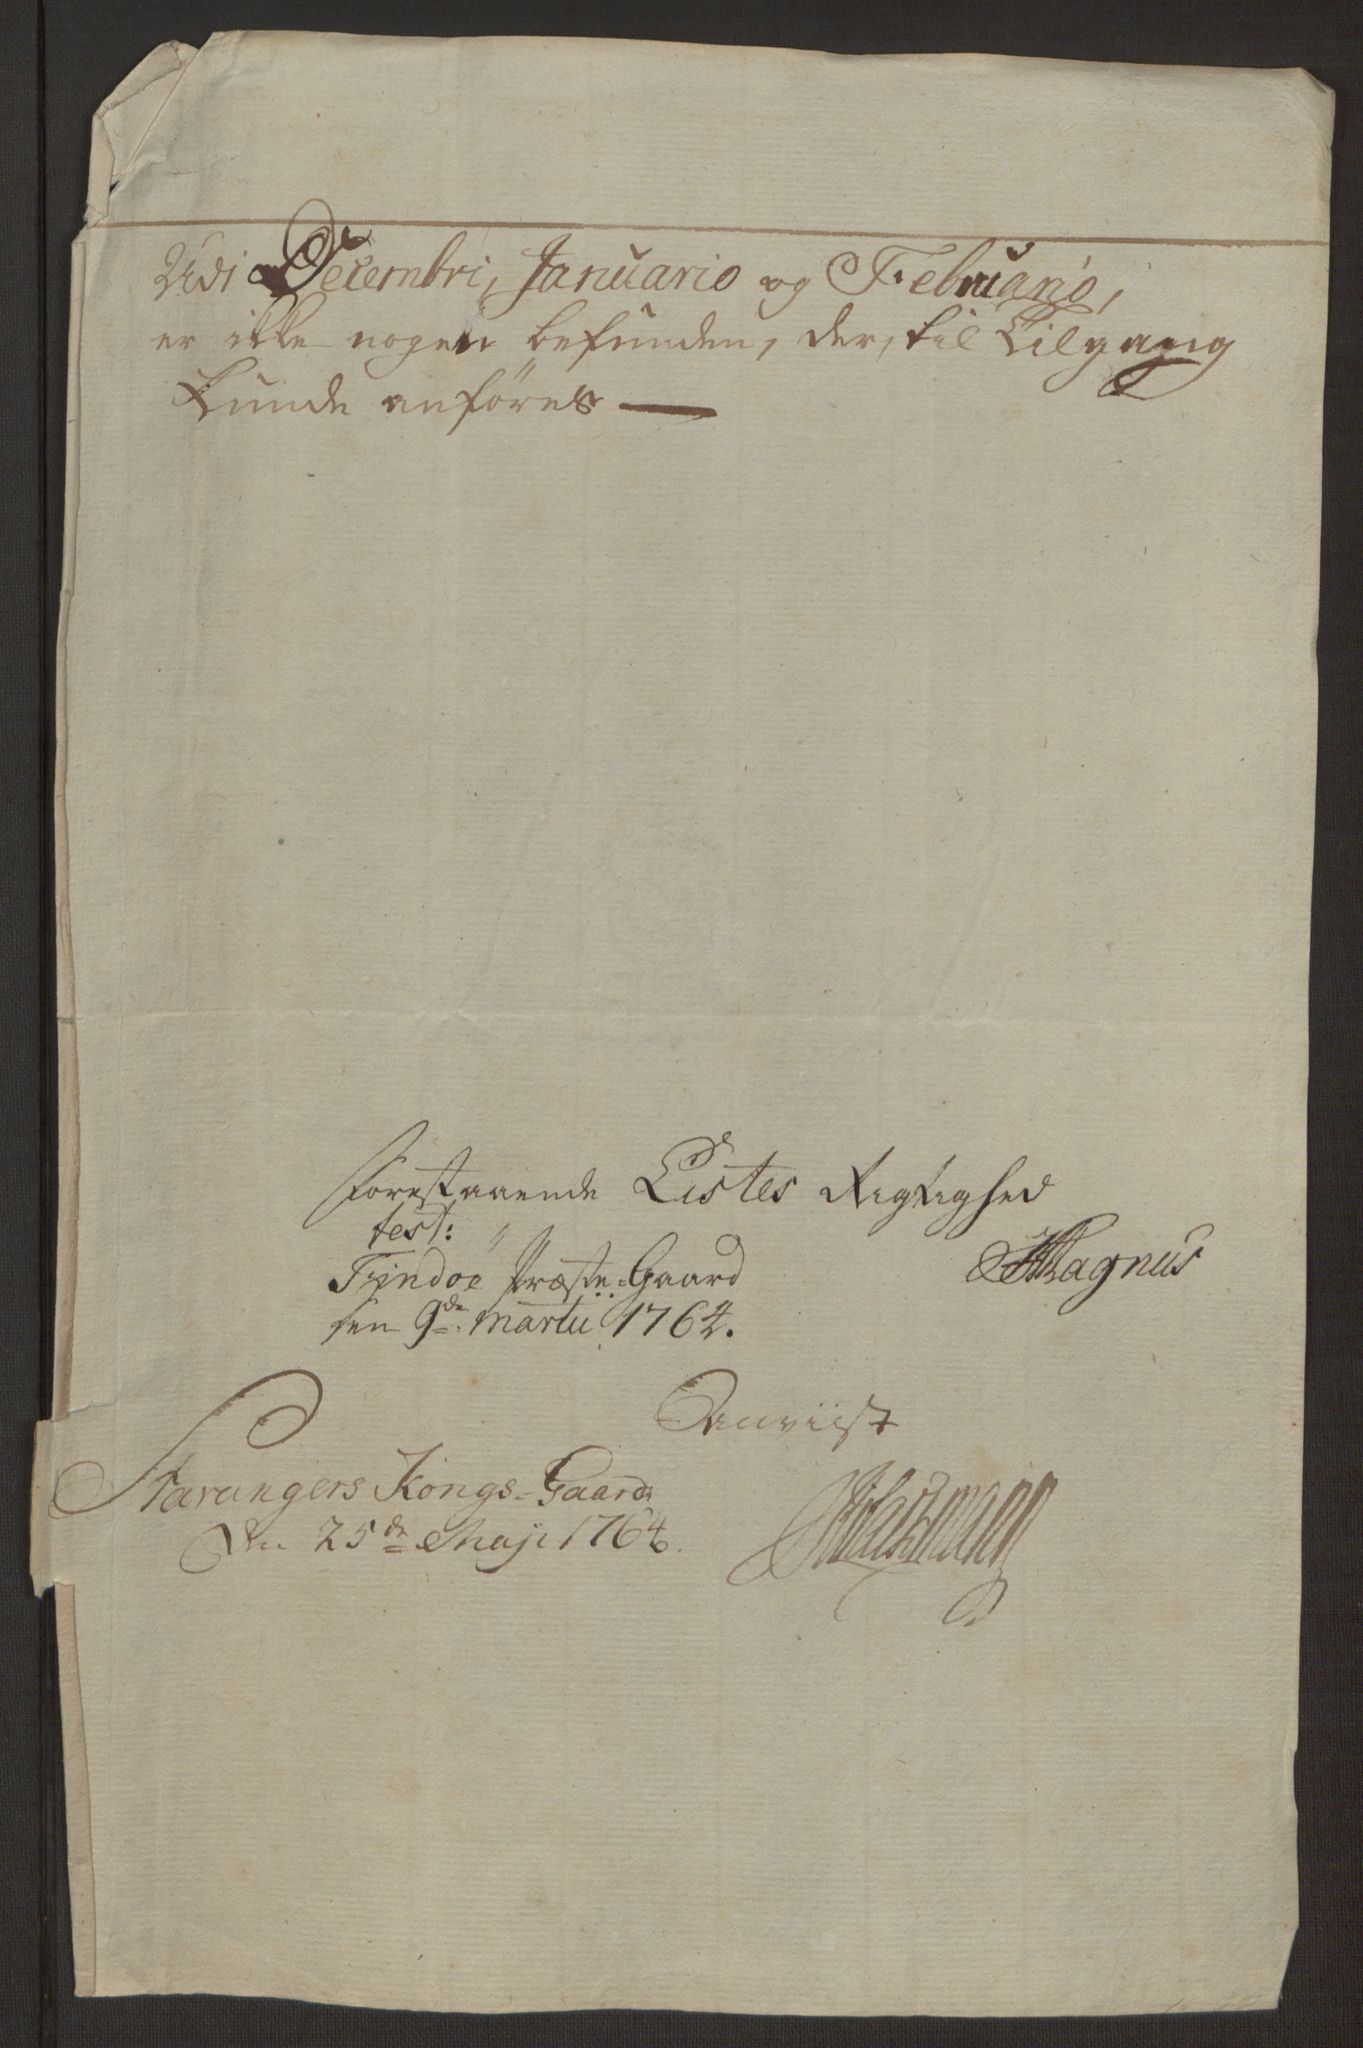 Udi Decembri, Januario og Februario,
er ikke nogen befunden, der, til Tilgang
kunde anføres —
Forestaaende Listes Rigtighed
test:
Findöe Præste-Gaard
den 9de Martii 1764.
Magnus
Anviist
Stavangers Kongs-Gaard
den 25de Maji 1764.